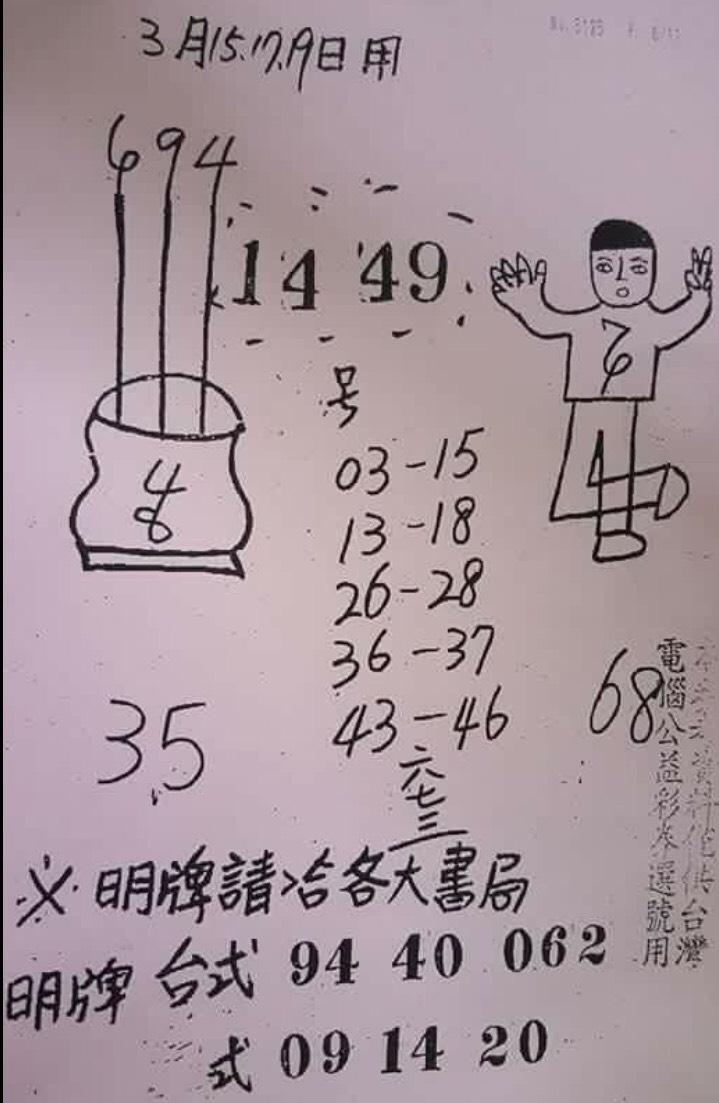 3月15.17.19日用
694
14 49
号
7
6
4
8
03-15
13-18
26-28
36-37
43-46
六
七
三
35
68
資料僅供台灣
電腦公益彩券選號用
※明牌請洽各大書局
明牌 台式 94 40 062
式 09 14 20